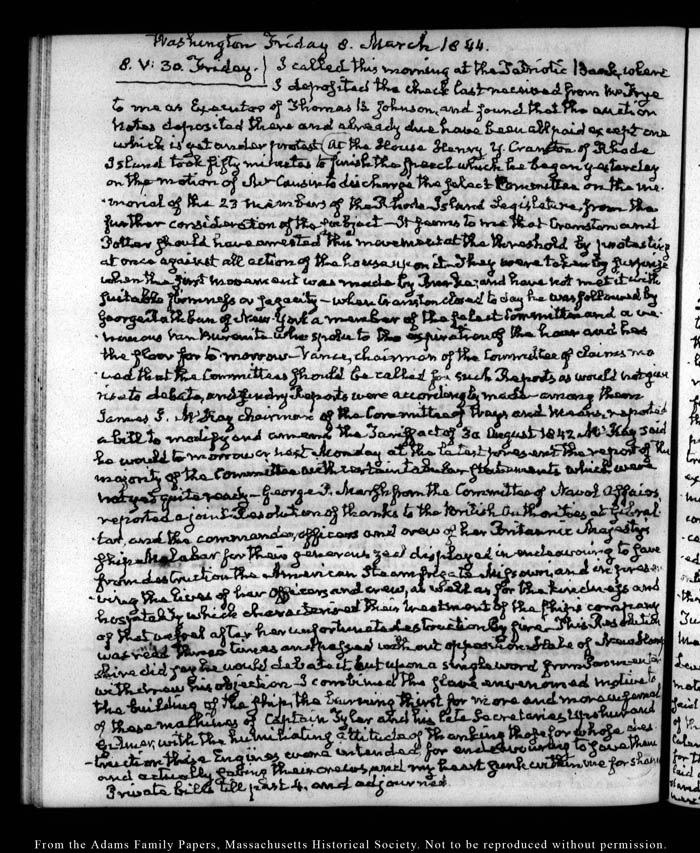 Washington Friday 8. March 1844.
8. V: 30. Friday. } I called this morning at the Patriotic Bank, where
I deposited the check last received from Mr Frye
to me as Executor of Thomas B Johnson, and found that the auction
Notes deposited there and already due have been all paid except one
which is yet under protest. At the House Henry Y. Cranston of Rhode
Island took fifty minutes to finish the speech which he began yesterday
on the motion of Mr Causin to discharge the select Committee on the me-
-morial of the 23 members of the Rhode Island Legislature from the
further consideration of the subject — It seems to me that Cranston and
Potter should have arrested this movement at the threshold by protesting
at once against all action of the house upon it. They were taken by surprize
when the first movement was made by Burke; and have not met it with
suitable firmness or sagacity — when Cranston closed to day he was followed by
George Rathbun of New York a member of the select Committee and a ve-
-nemous Van Burenite who spoke to the expiration of the hour and has
the floor for to morrow — Vance, chairman of the Committee of claims mo-
-ved that the Committees should be called for such Reports as would not give
rise to debate, and sundry Reports were accordingly made — among them
James I. McKay chairman of the Committee of Ways and Means, reported
a bill to modify and amend the Tariff act of 30 August 1842. McKay said
he would to morrow or next Monday at the latest present the report of the
majority of the Committee with certain tabular statements which were
not yet quite ready — George P. Marsh from the Committee of Naval Affairs,
reported a joint Resolution of thanks to the British Authorities at Gibral-
-tar, and the commander, officers and crew of her Britannic Majesty's
ship Malabar for their generous zeal displayed in endeavouring to save
from destruction the American Steam frigate Missouri, and in preser-
-ving the lives of her Officers and crew, as well as for the kindness and
hospitality which characterised their treatment of the ship's company
of that vessel after her unfortunate destruction by fire. This Resolution
was read three times and passed without opposition. Hale of New Hamp-
shire did say he would debate it but upon a single word from
withdrew his objection. I combined the slave envenomed motive to
the building of the ship, the burning thirst for more and more
of these machines of Captain Tyler and his late Secretaries Upshur and
Gilmer, with the humiliating attitude of thanking those for whose des-
-truction those Engines were intended for endeavouring to save them
and actually saving their crews, and my heart sunk within me for shame
Private bills till past 4. and adjourned.
From the Adams Family Papers, Massachusetts Historical Society. Not to be reproduced without permission.